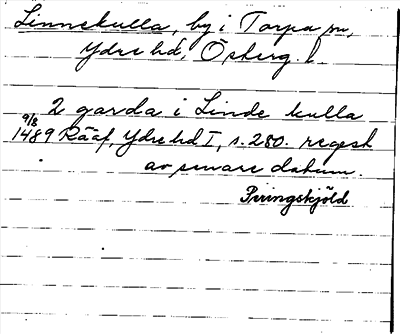 Linnekulla, by i Torpa sn,
Ydre hd, Österg. l.
2 garda i Linde kulla
9/8
1489 Rääf, Ydre hd I, s. 280. regest
av senare datum.
Peringskjöld